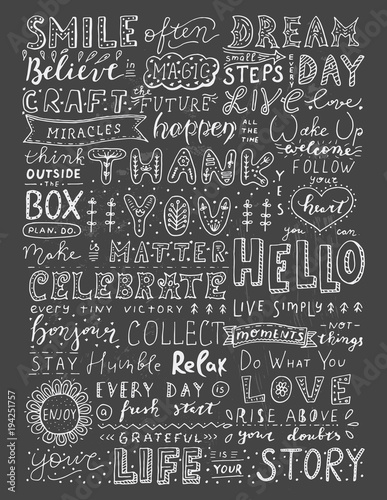 SMILE often DREAM
Believe in MAGIC small STEPS EVERY DAY
CRAFT the FUTURE LIVE Love.
MIRACLES happen ALL THE TIME Wake Up
think OUTSIDE THE BOX THANK YOU!! YES welcome
PLAN. DO. FOLLOW your heart
Make it MATTER HELLO you can
CELEBRATE
every tiny VICTORY LIVE SIMPLY
bonjour COLLECT MOMENTS -NOT- things
STAY Humble Relax Do What You LOVE
ENJOY EVERY DAY IS a fresh start
RISE ABOVE
GRATEFUL your doubts
your LIFE IS YOUR STORY
Adobe Stock | #194251757